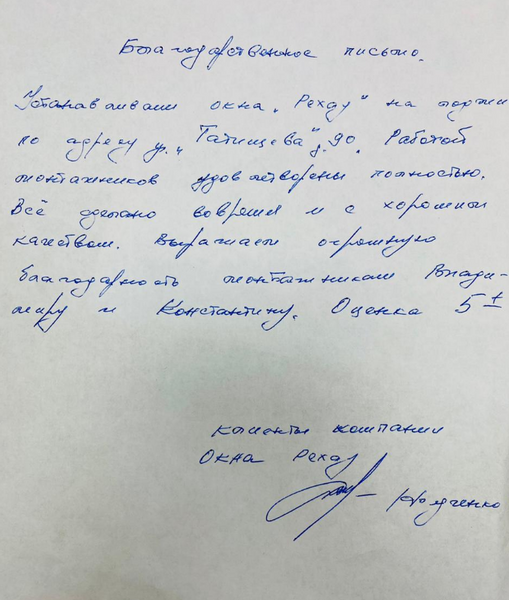 Благодарственное письмо.
Устанавливали окна „Рехау" на лоджии
по адресу ул. „Татищева", д. 90. Работой
монтажников удовлетворены полностью.
Всё сделано вовремя и с хорошим
качеством. Выражаем огромную
благодарность монтажникам Влади-
миру и Константину. Оценка 5+
клиенты компании
Окна Рехау